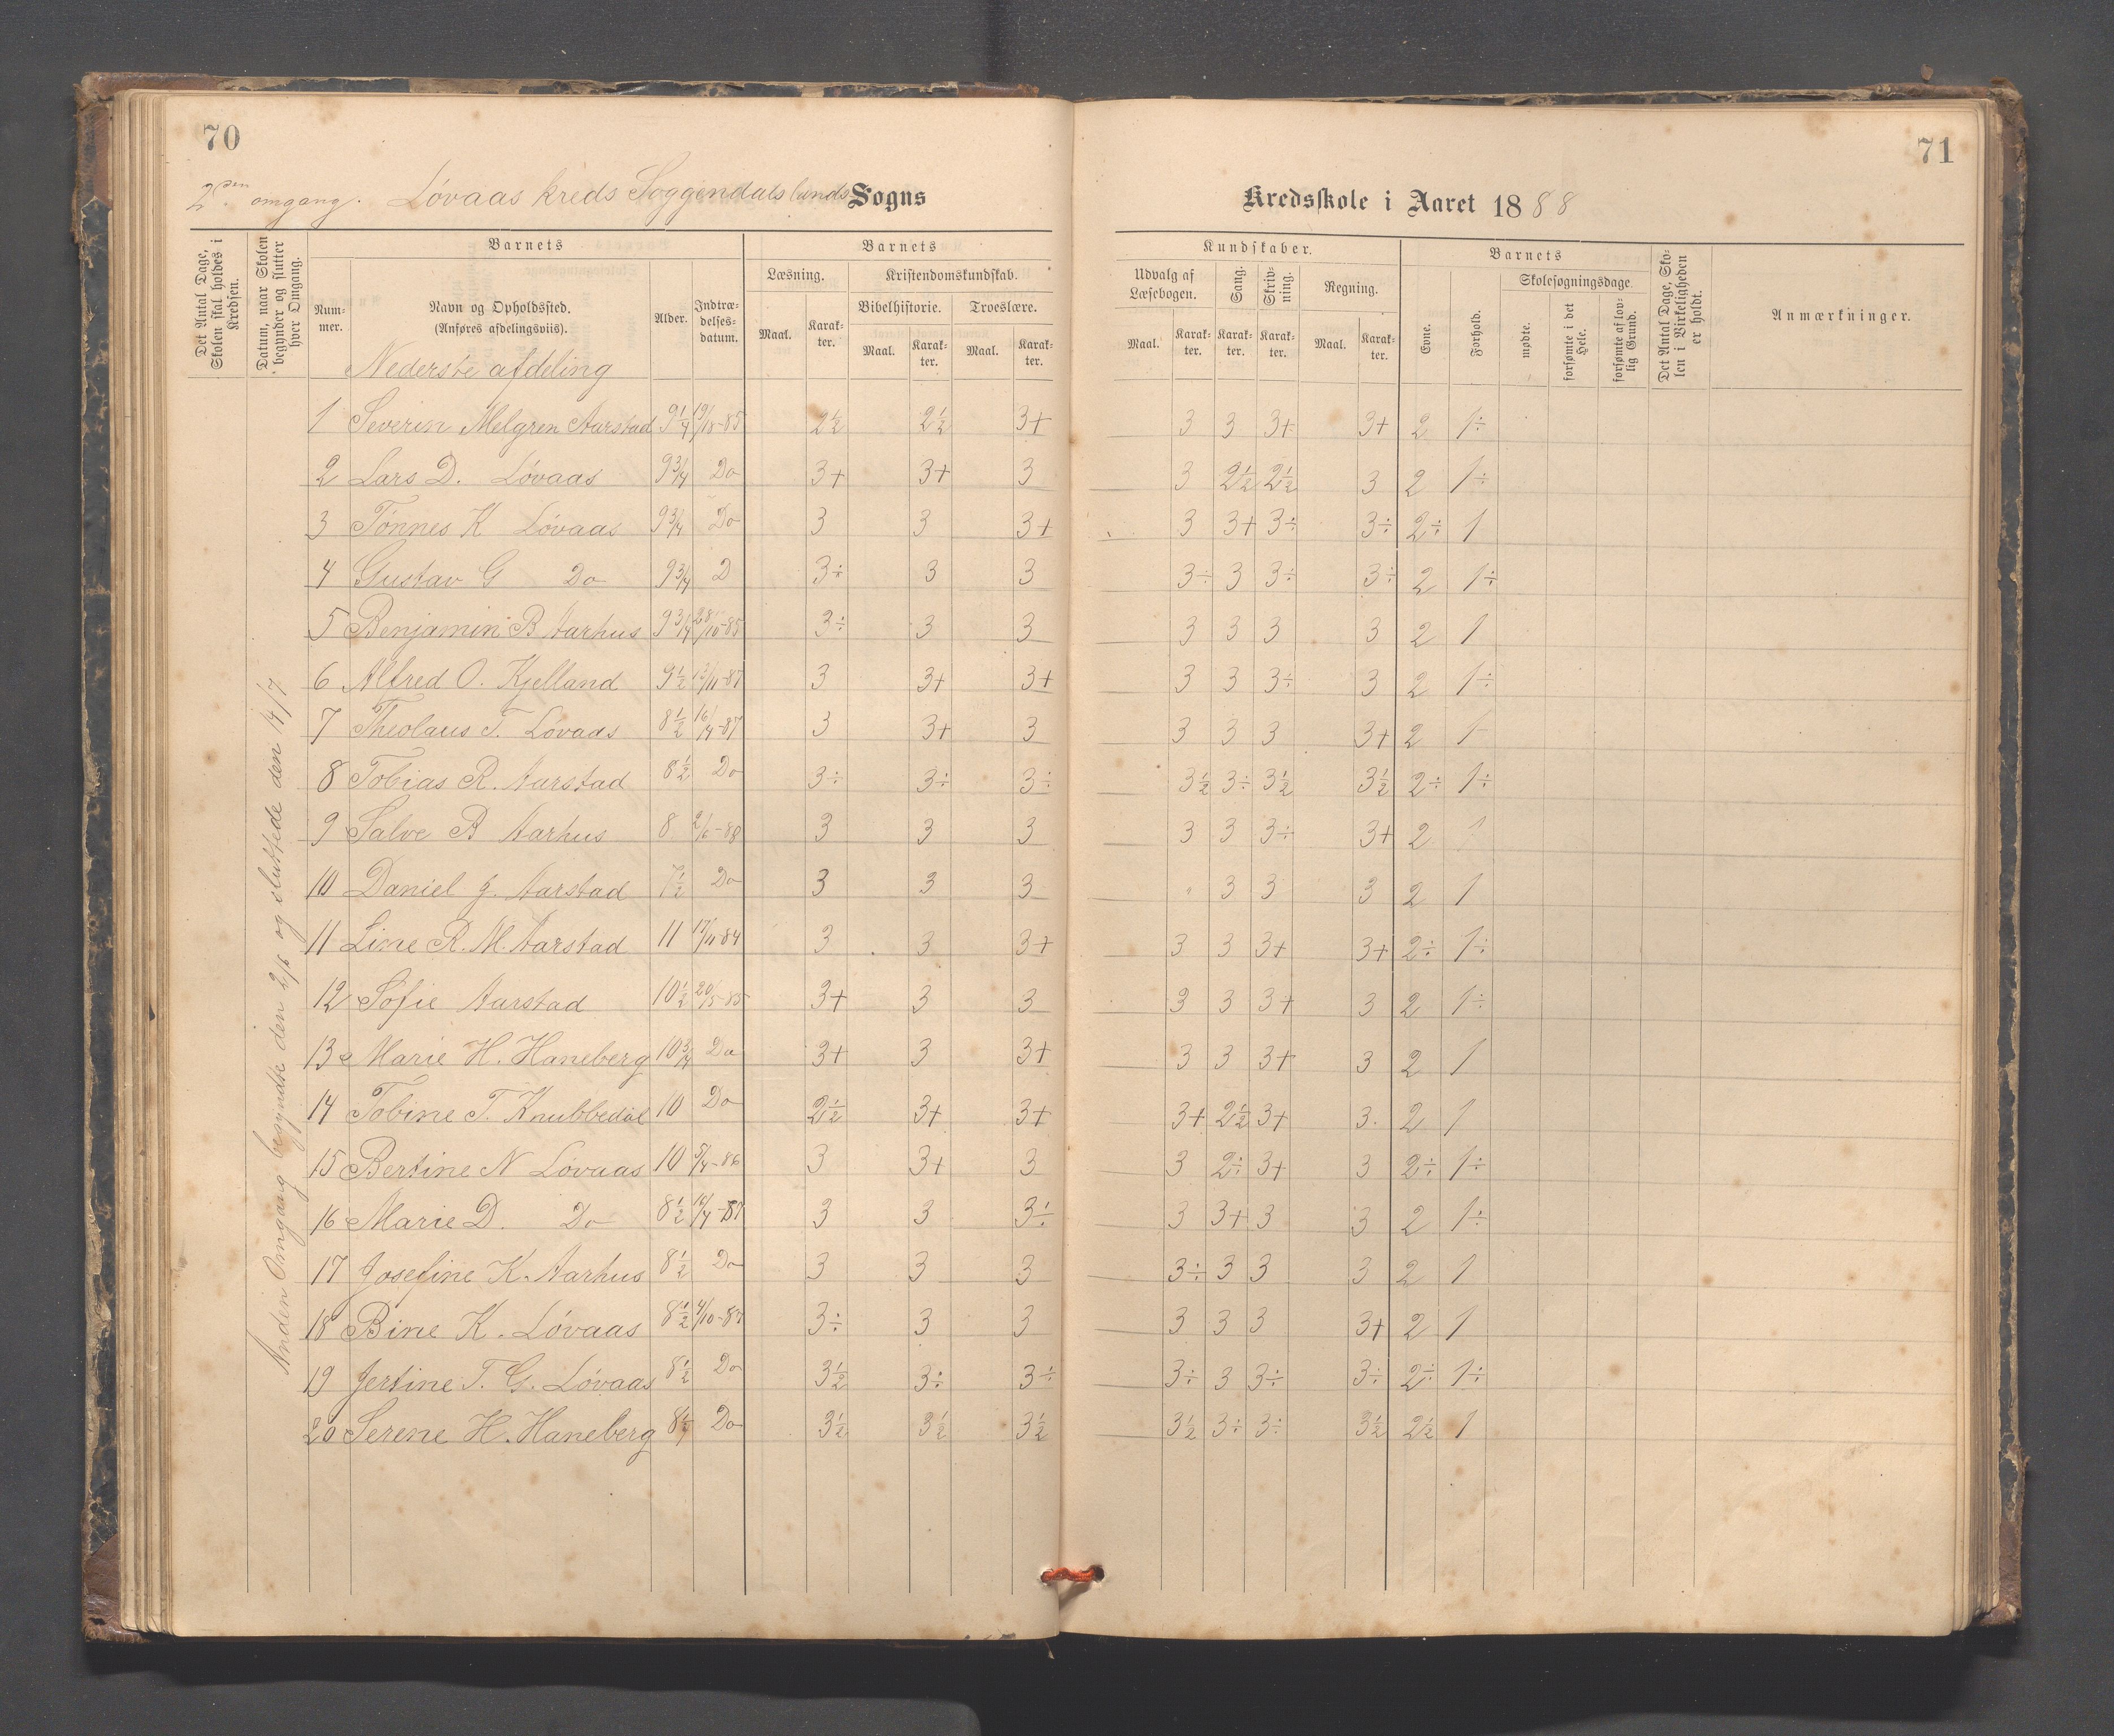 70
71
2den omgang. Løvaas kreds Soggendals lands Sogns
Kredsskole i Aaret 1888
Det Antal Dage, Skolen skal holdes i Kredsen.
Datum, naar Skolen begynder og slutter hver Omgang.
Barnets
Nummer.
Navn og Opholdssted.
(Anføres afdelingsviis).
Alder.
Indtrædelsesdatum.
Barnets
Læsning.
Maal.
Karakter.
Kristendomskundskab.
Bibelhistorie.
Maal.
Karakter.
Troeslære.
Maal.
Karakter.
Kundskaber.
Udvalg af Læsebogen.
Maal.
Karakter.
Sang.
Karakter.
Skrivning.
Karakter.
Regning.
Maal.
Karakter.
Barnets
Evne.
Forhold.
Skolesøgningsdage.
mødte.
forsømte i det Hele.
forsømte af lovlig Grund.
Det Antal Dage, Skolen i Virkeligheden er holdt.
Anmærkninger.
Anden Omgang begyndte den 2/6 og sluttede den 14/7
Nederste afdeling
1 Severin Melgren Aarstad 9 1/4 19/10-85 2 1/2 2 1/2 3+ 3 3 3+ 3+ 2 1÷
2 Lars D. Løvaas 9 3/4 Do 3+ 3+ 3 3 2 1/2 2 1/2 3 2 1÷
3 Tønnes K Løvaas 9 3/4 Do 3 3 3+ 3 3+ 3÷ 3÷ 2÷ 1
4 Gustav G Do 9 3/4 D 3÷ 3 3 3÷ 3 3÷ 3÷ 2 1÷
5 Benjamin B Aarhus 9 3/4 28/10-85 3÷ 3 3 3 3 3 3 2 1
6 Alfred O. Kjelland 9 1/2 12/11-87 3 3+ 3+ 3 3 3÷ 3 2 1÷
7 Theolaus T. Løvaas 8 1/2 16/4-87 3 3+ 3 3 3 3 3+ 2 1
8 Tobias R. Aarstad 8 1/2 Do 3÷ 3÷ 3÷ 3 1/2 3÷ 3 1/2 3 1/2 2÷ 1÷
9 Salve B Aarhus 8 2/6-88 3 3 3 3 3 3÷ 3+ 2 1
10 Daniel J. Aarstad 7 1/2 Do 3 3 3 " 3 3 3 2 1
11 Line R. M. Aarstad 11 17/11-84 3 3 3+ 3 3 3+ 3+ 2÷ 1÷
12 Sofie Aarstad 10 1/2 20/5-85 3+ 3 3 3 3 3+ 3 2 1÷
13 Marie H. Haneberg 10 3/4 Do 3+ 3 3+ 3 3 3+ 3 2 1
14 Tobine T. Knubbedal 10 Do 2 1/2 3+ 3+ 3+ 2 1/2 3+ 3. 2 1
15 Bertine N Løvaas 10 5/4-86 3 3+ 3 3 2÷ 3+ 3 2÷ 1÷
16 Marie D. Do 8 1/2 16/4-87 3 3 3÷ 3 3+ 3 3 2 1÷
17 Josefine K. Aarhus 8 1/2 Do 3 3 3 3÷ 3 3 3 2 1
18 Bine K. Løvaas 8 1/2 4/10-87 3÷ 3 3 3 3 3 3+ 2 1
19 Jertine T. G. Løvaas 8 1/2 Do 3 1/2 3÷ 3÷ 3÷ 3 3÷ 3÷ 2÷ 1÷
20 Serene H. Haneberg Do 3 1/2 3 1/2 3 1/2 3 1/2 3÷ 3÷ 3 1/2 2 1/2 1